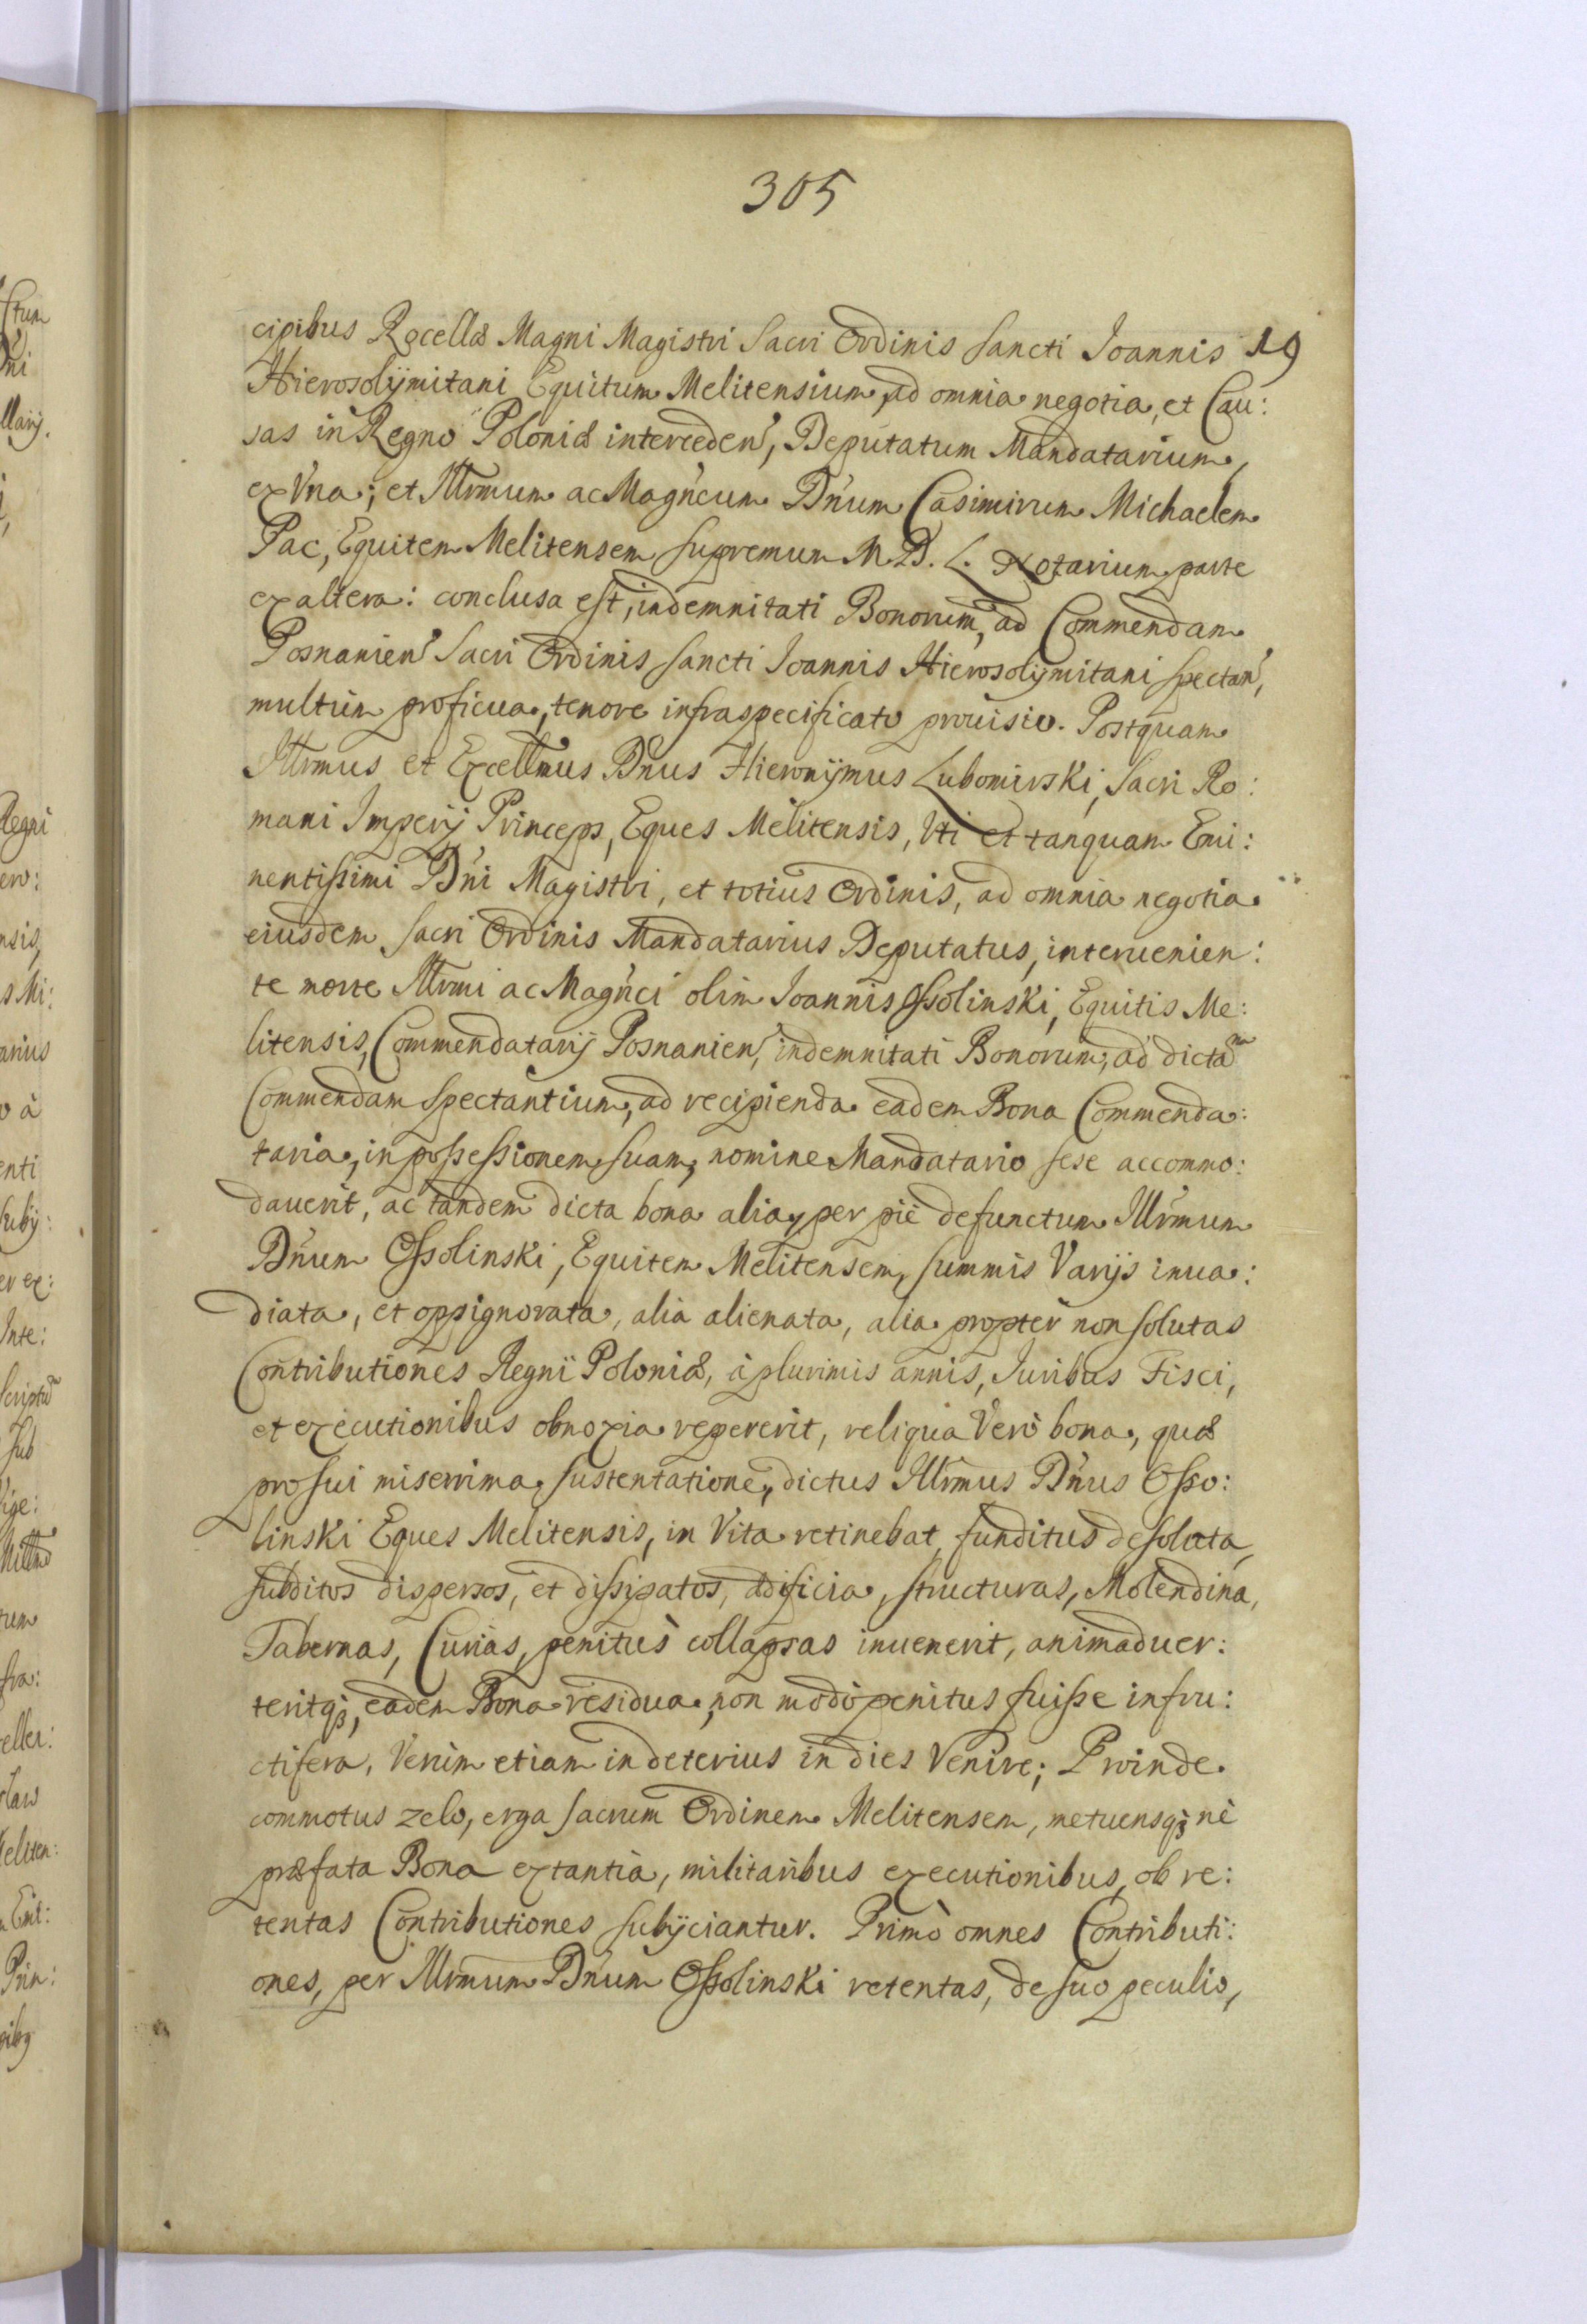 305
cipibus Rocellæ Magni Magistri Sacri Ordinis Sancti Ioannis 19
Hierosolÿmitani Equitum Melitensium, ad omnia negotia, et Cau:
sas in Regno Poloniæ interceden', Deputatum Mandatarium,
ex Vna; et Illrmum ac Magn'cum Dn'um Casimirum Michaelem
Pac, Equitem Melitensem Supremum M. D. L. Notarium parte
ex altera: conclusa est, indemnitati Bonorum, ad Commendam
Posnanien' Sacri Ordinis Sancti Ioannis Hierosolÿmitani spectan',
multum proficua, tenore infraspecificato prouisio. Postquam
Illrmus et Excellmus Dn'us Hieronÿmus Lubomirski, Sacri Ro:
mani Imperÿ Princeps, Eques Melitensis, Vti et tanquam Emi:
nentissimi Dn'i Magistri, et totius Ordinis, ad omnia negotia
eiusdem Sacri Ordinis Mandatarius Deputatus, interuenien:
te morte Illrmi ac Magn'ci olim Ioannis Ossolinski, Equitis Me:
litensis, Commendatarÿ Posnanien', indemnitati Bonorum, ad dictam
Commendam spectantium, ad recipienda eadem Bona Commenda:
taria, in possessionem suam, nomine Mandatario sese accommo:
dauerit, ac tandem dicta bona alia, per piè defunctum Illrmum
Dn'um Ossolinski, Equitem Melitensem, summis Varÿs inua:
diata, et oppignorata, alia alienata, alia propter non solutas
Contributiones Regni Poloniæ, à plurimis annis, Iuribus Fisci,
et executionibus obnoxia repererit, reliqua Verò bona, quæ
pro sui miserrima sustentatione, dictus Illrmus Dn'us Osso:
linski Eques Melitensis, in Vita retinebat, funditus desolata,
subditos dispersos, et dissipatos, ædificia, structuras, Molendina,
Tabernas, Curias, penitùs collapsas inuenerit, animaduer:
teritq3, eadem Bona residua, non modò penitus fuisse infru:
ctifera, Verùm etiam in deterius in dies Venire; Proinde
commotus zelo, erga Sacrum Ordinem Melitensem, metuensq3 nè
præfata Bona extantia, militaribus executionibus, ob re:
tentas Contributiones subÿciantur. Primò omnes Contributi:
ones, per Illrmum Dn'um Ossolinski retentas, de suo peculio,